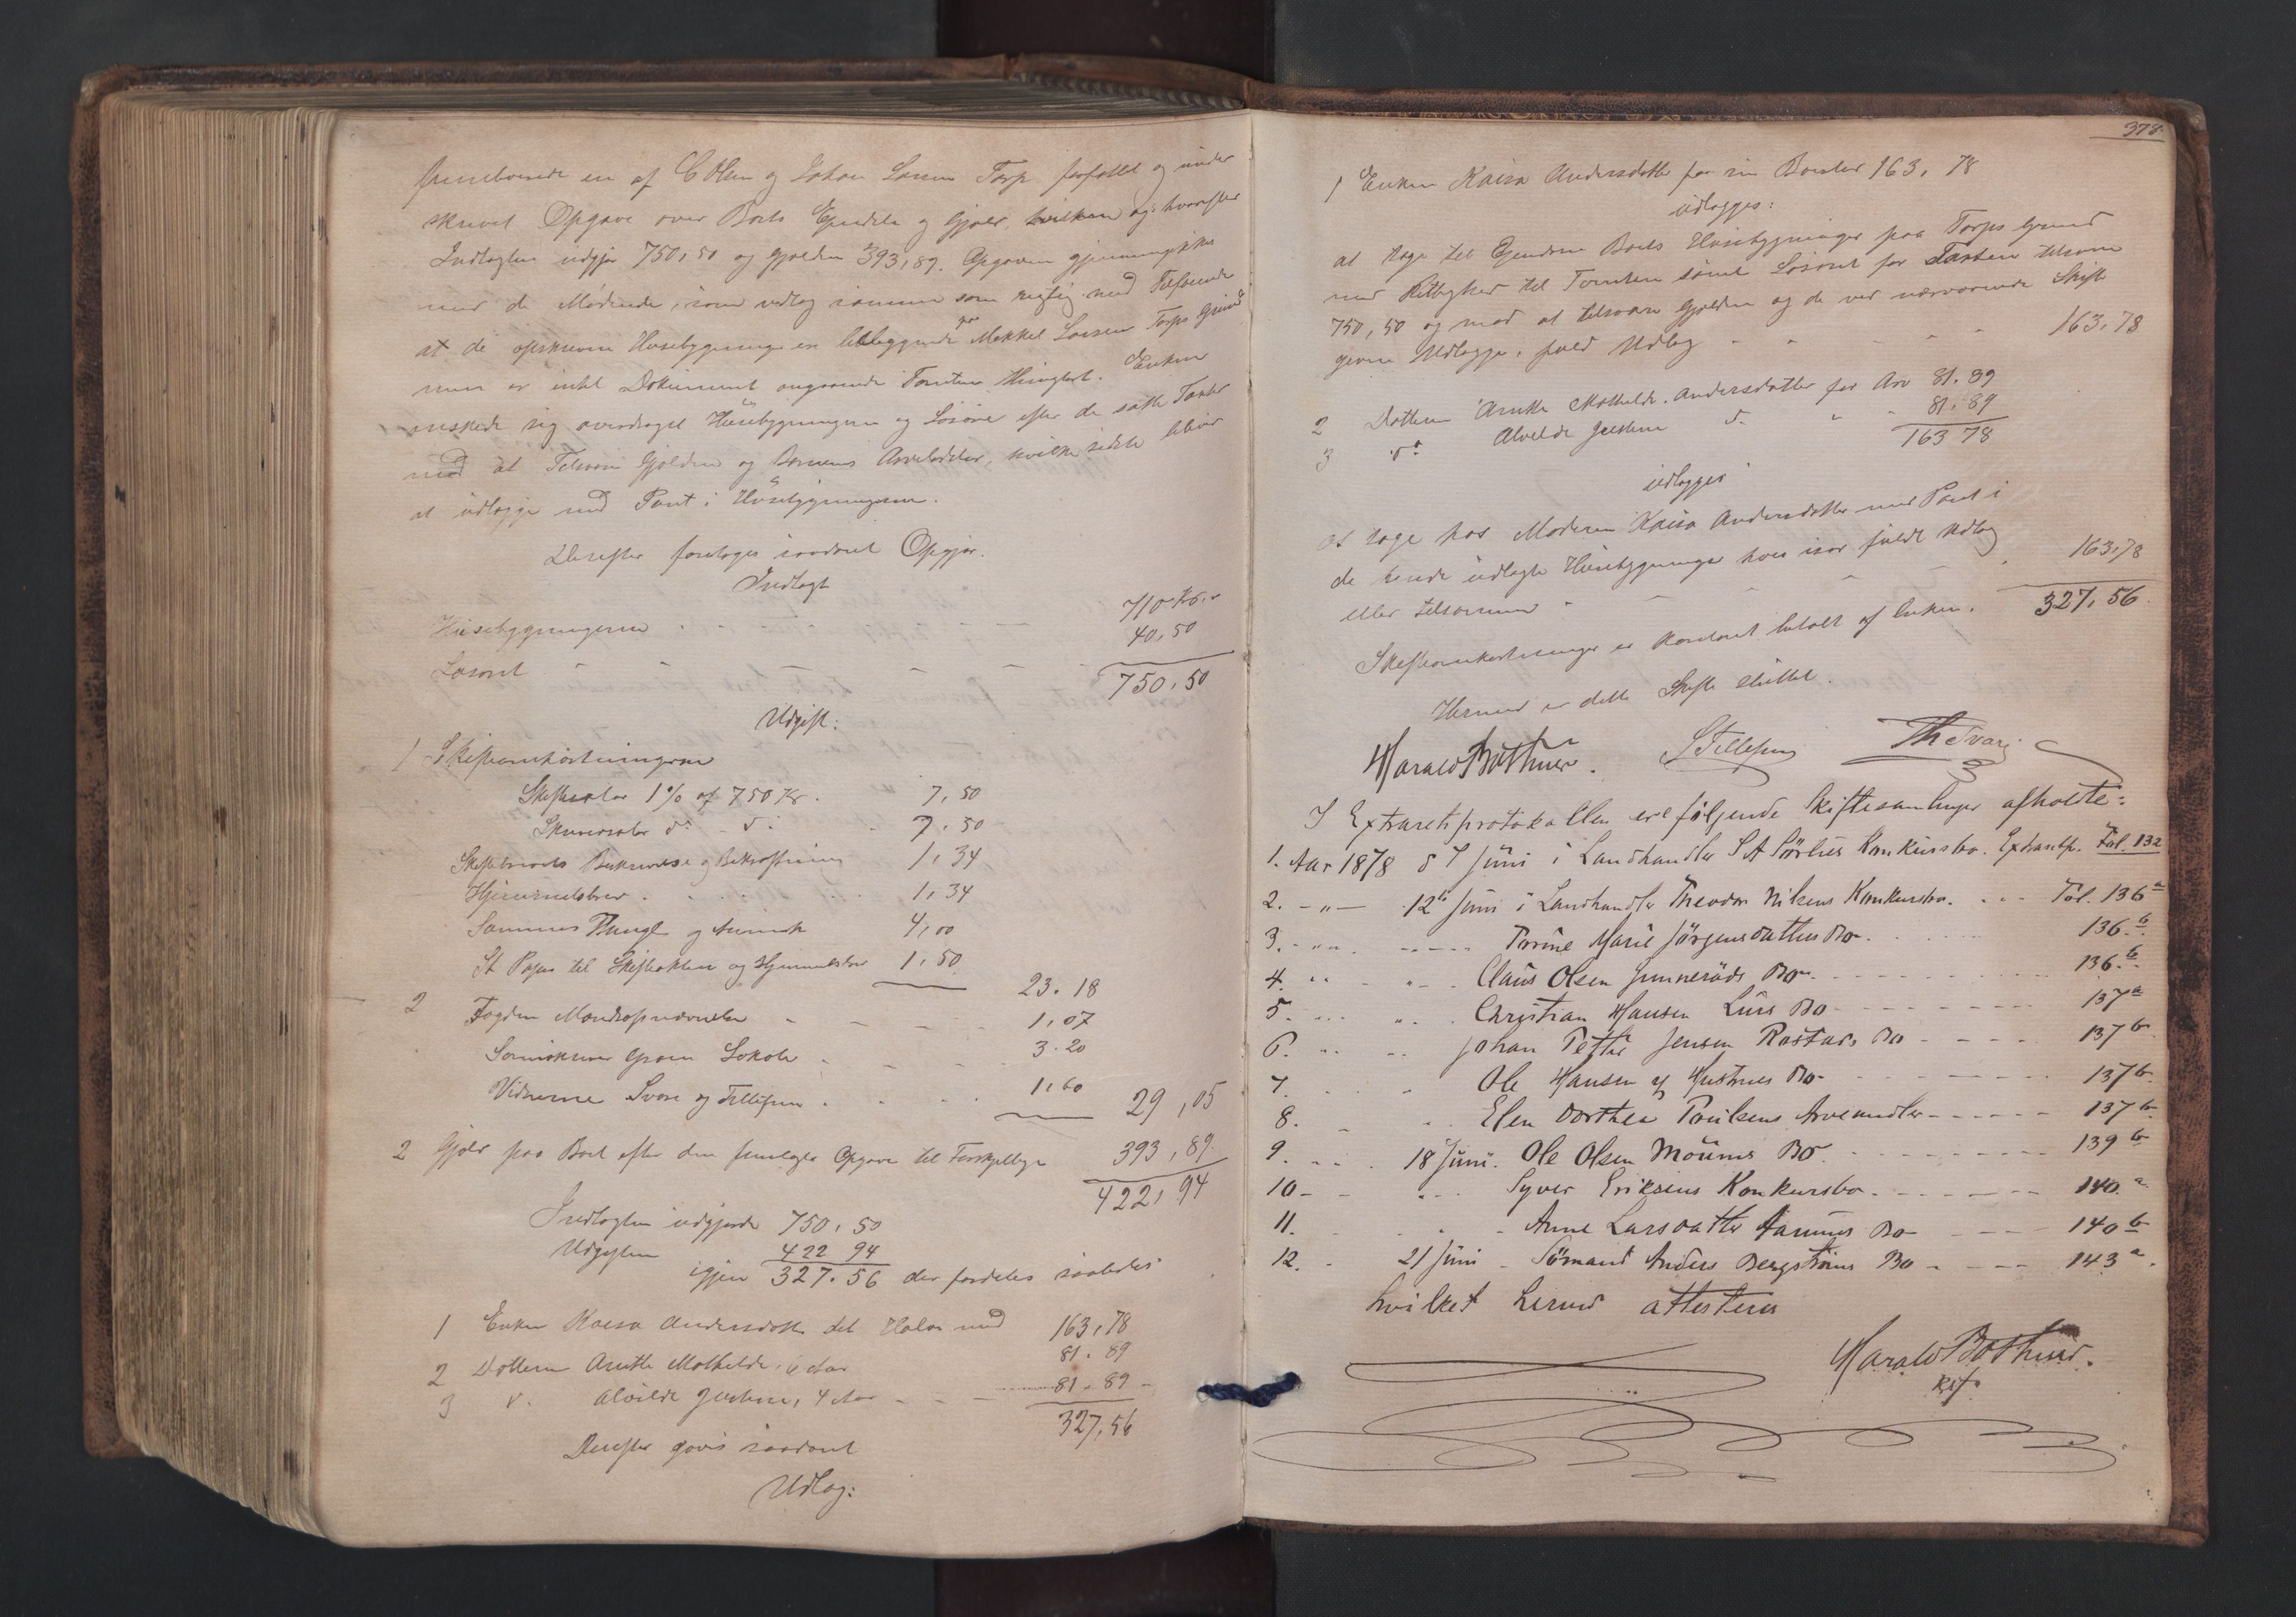 en af C Olsen og Johan Larsen Torp forfattet og under
skrevet Opgave over Boets Eiendele og Gjæld, hvilken og hvorefter
Indtægten udgjør 750,50 og Gjælden 393,89. Opgaven gjennemgikkes
med de Mødende, som vedtog samme som rigtig med Tilføiende
at de opskrevne Husebygninger er beliggende paa Mekkel Larsens Torps Grund
men er intet Dokument angaaende Tomten tinglyst. Enken
ønskede sig overdraget Husebygningerne og Løsøre efter de satte Taxter
mod at Tilsvare Gjælden og Børnenes Arvelodder, hvilke sidste blive
at udlægge med Pant i Husebygningerne.
Derefter foretoges saadant Opgjør.
Indtægt
Husebygningerne - - - - 710 Kr. -
Løsøret - - - - 40,50
750,50
Udgift:
1 Skifteomkostningerne
Skiftesalær 1% af 750 Kr. 7,50
Skriversalær d: - d: - 7,50
Skiftebrevets Beskrivelse og Bekræftning 1,34
Hjemmelsbrev . . . . 1,34
Sammes Thingl og Anmærk 4,00
St Papir til Skifteakten og Hjemmelsbrev 1,50
23.18
2 Fogden Mændsopnævnelse - - - 1,07
Lokale - 3.20
Vidnerne Svare og Tellefsen . . . 1,60
29,05
2 Gjæld paa Boet efter den fremlagte Opgave til Forskjellige 393,89
422,94
Indtægten udgjorde 750,50
Udgiften 422 94
igjen 327.56 der fordeles saaledes
1 Enken Kaisa Andersdatter det Halve med 163,78
2 Datteren Anette Mathilde, 6 Aar 81.89
3 d. Alvilde Justine, 4 Aar - - - 81.89 -
327,56
Derefter gaves saadant
Udlæg:
378
1 Enken Kaisa Andersdatter for sin Boeslod 163,78
udlægges:
at tage til Eiendom Boets Husebygninger paa Torps Grund
med Rettighed til Tomten samt Løsøret for Taxten tilsamen
750,50 og mod at tilsvare Gjælden og de ved nærværende Skifte
givne Udlægge, fuld Udlæg - - - - 163,78
2 Datteren Anette Mathilde Andersdatter for Arv 81.89
3 d: Alvilde Justine d. - - 81,89
163 78
udlægges
at tage hos Moderen Kaisa Andersdatter med Pant i
de hende udlagte Husebygninger hver især fuldt Udlæg
eller tilsammen - - - - 163,78
327,56
Skifteomkostninger er kontant betalt af Enken.
Hermed er dette Skifte sluttet.
Harald Bothner. S Tellefsen Th Svare
I Extraretsprotokollen ere følgende Skiftesamlinger afholdte:
1. Aar 1878 d 7 Juni i Landhandler S A Sørlies Konkursbo. Extraretspr. Fol. 132
2. - " - 12te Juni i Landhandler Theodor Nilsens Konkursbo. . . . Fol. 136 a
3. - " - - - - Torine Marie Jørgensdatters Bo - . 136. b
4. " - " - Claus Olsen Gunnerøds Bo - - - - 136. b
5. " - " - Christian Hansen Lurs Bo - - - - 137 a
6. " - " - Johan Petter Jensen Rostads Bo - - - - 137 b
7. " - Ole Hansen og Hustrues Bo - - - - 137 b
8. " - Elen Dorthea Poulsens Arvemidler - - - - 137 b
9. " - 18 Juni. Ole Olsen Moums Bo - - - - 139 b
10 - - " - Syver Eriksens Konkursbo - - - - 140. a
11. - " - Anne Larsdatter Bo - - - - 140 b
12. - 21 Juni - Sömand Anders Bergstrøms Bo - - - - 143 a.
hvilket herved attesteres
Harald Bothner.